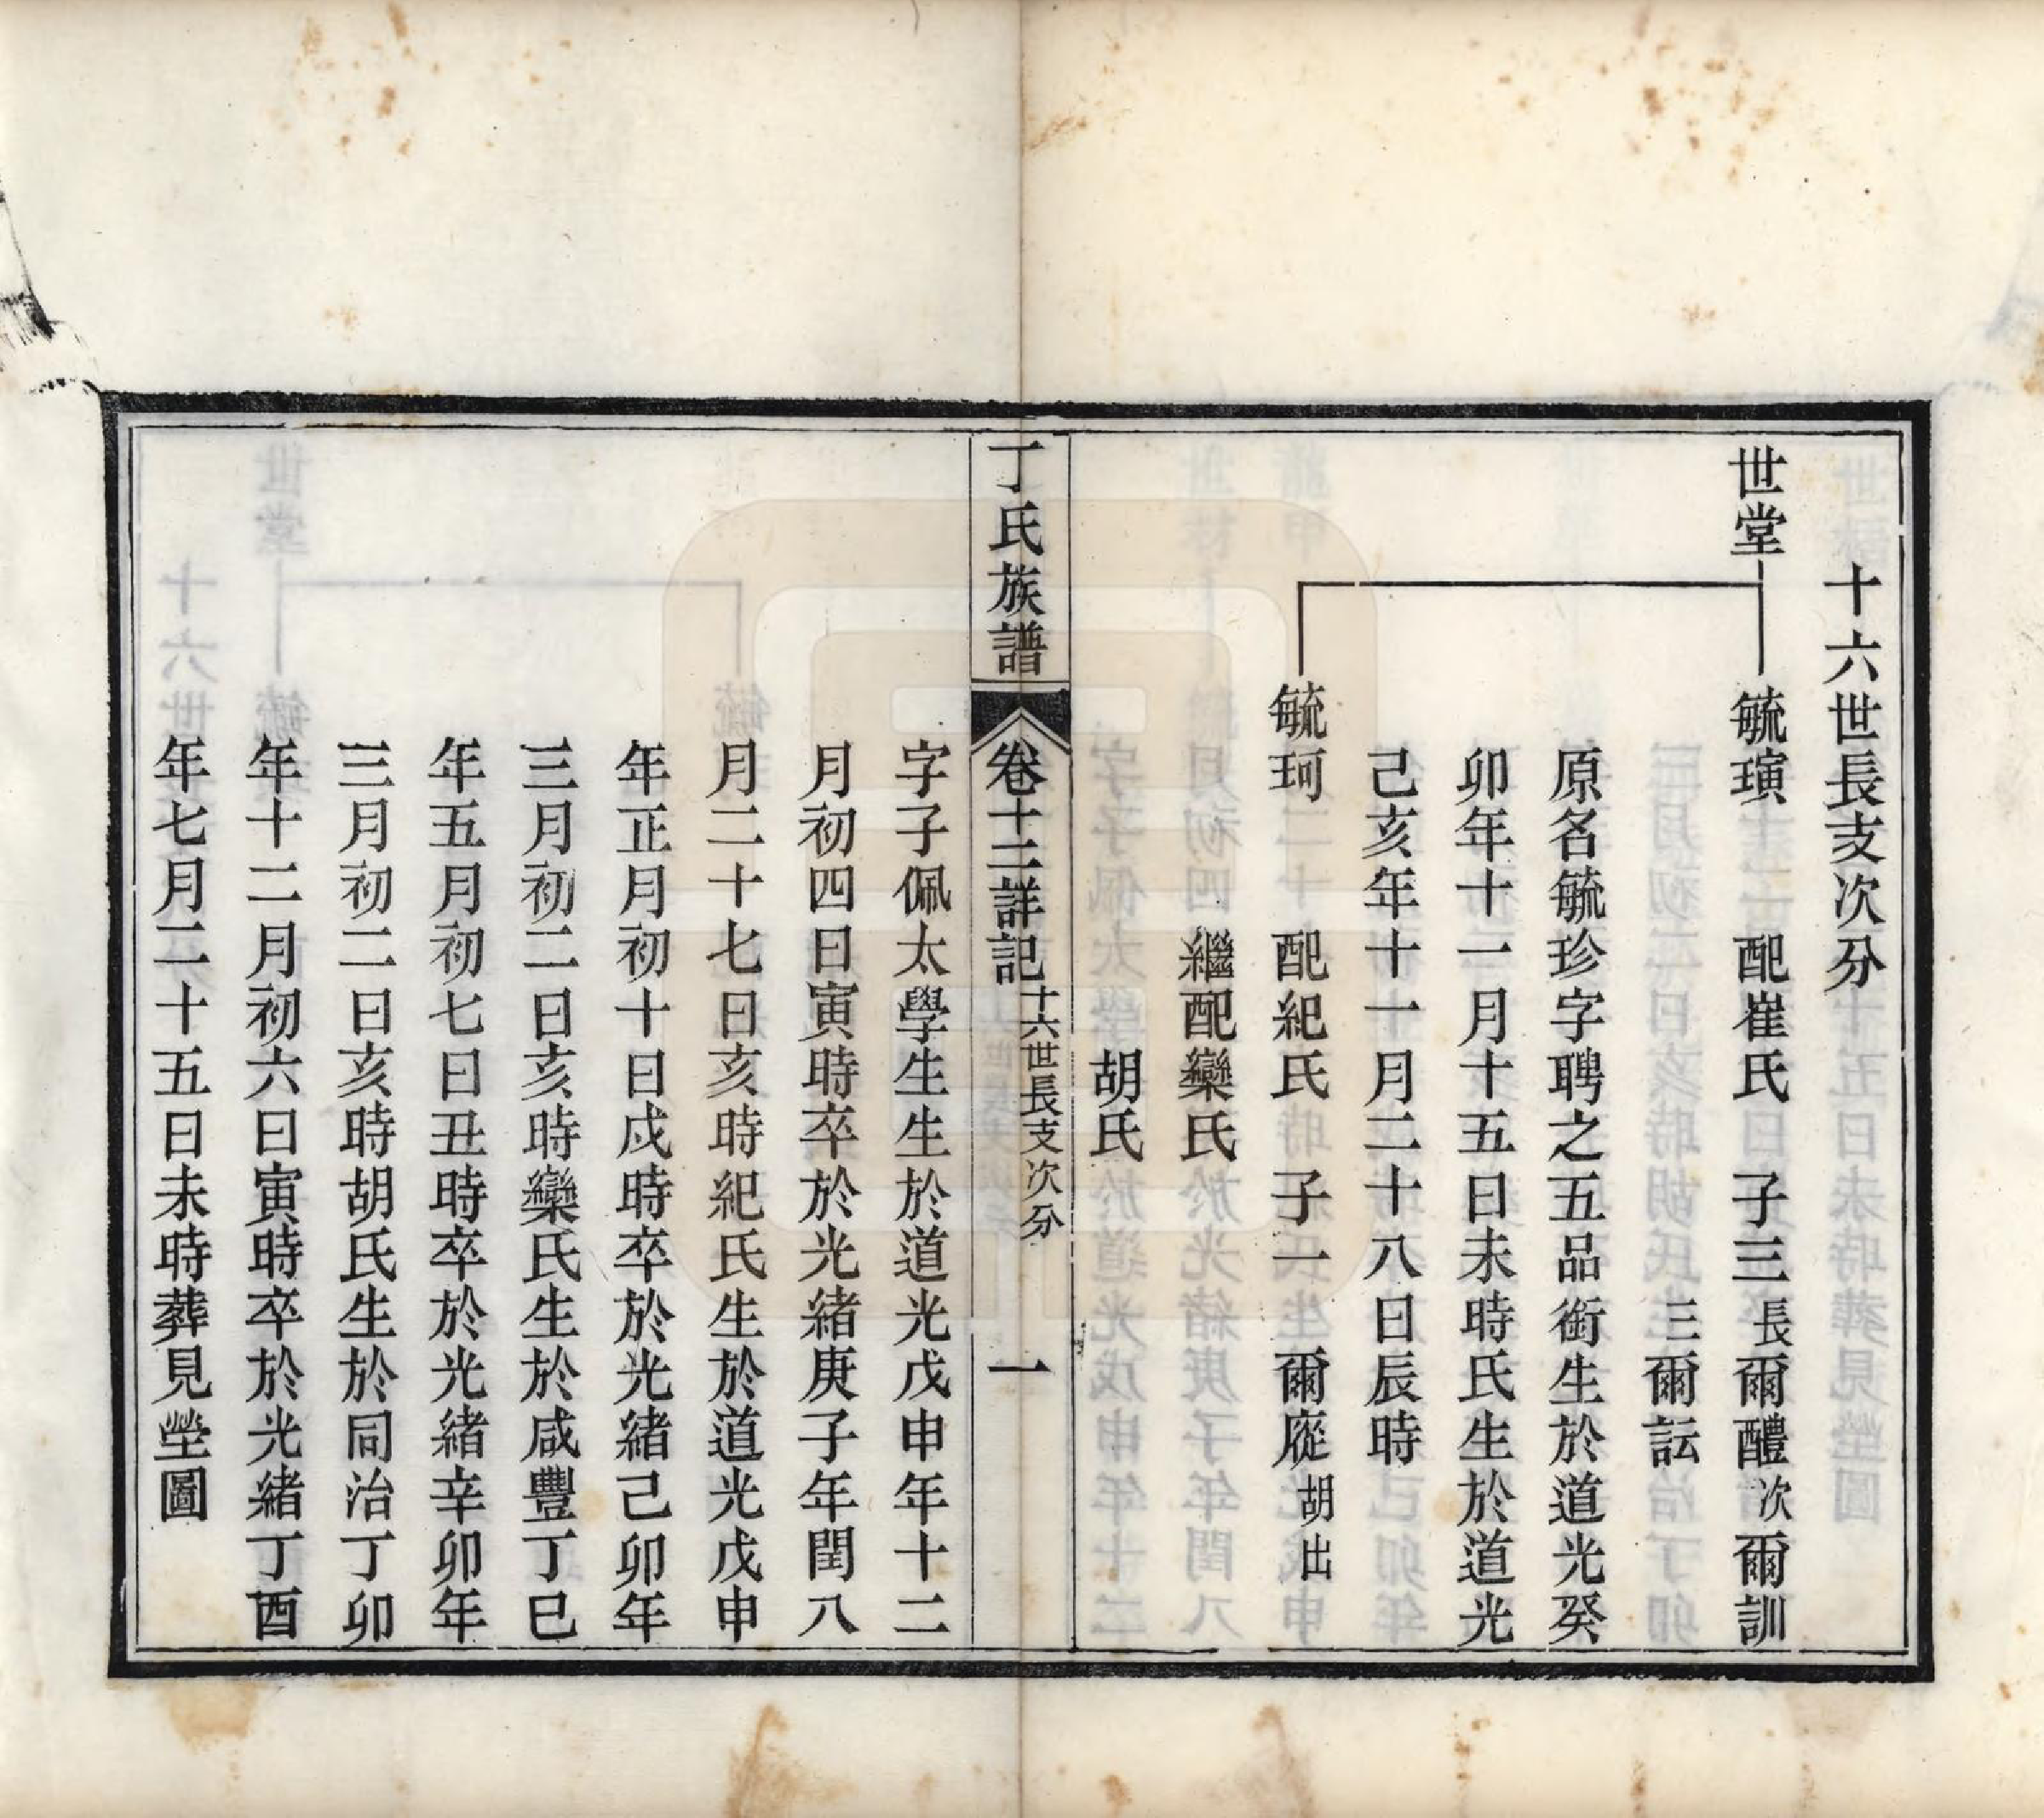 十六世長支次分
世堂 毓璌 配崔氏 子三 長爾醴 次爾訓
三爾訁
原名毓珍字聘之五品銜生於道光癸
卯年十一月十五日未時氏生於道光
己亥年十一月二十八日辰時
毓珂 配紀氏 子一 爾 胡出
繼配欒氏
胡氏
丁氏族譜 卷十二詳記 十六世長支次分 一
字子佩太學生生於道光戊申年十二
月初四日寅時卒於光緒庚子年閏八
月二十七日亥時紀氏生於道光戊申
年正月初十日戌時卒於光緒己卯年
三月初二日亥時欒氏生於咸豐丁巳
年五月初七日丑時卒於光緒辛卯年
三月初二日亥時胡氏生於同治丁卯
年十二月初六日寅時卒於光緒丁酉
年七月二十五日未時葬見塋圖